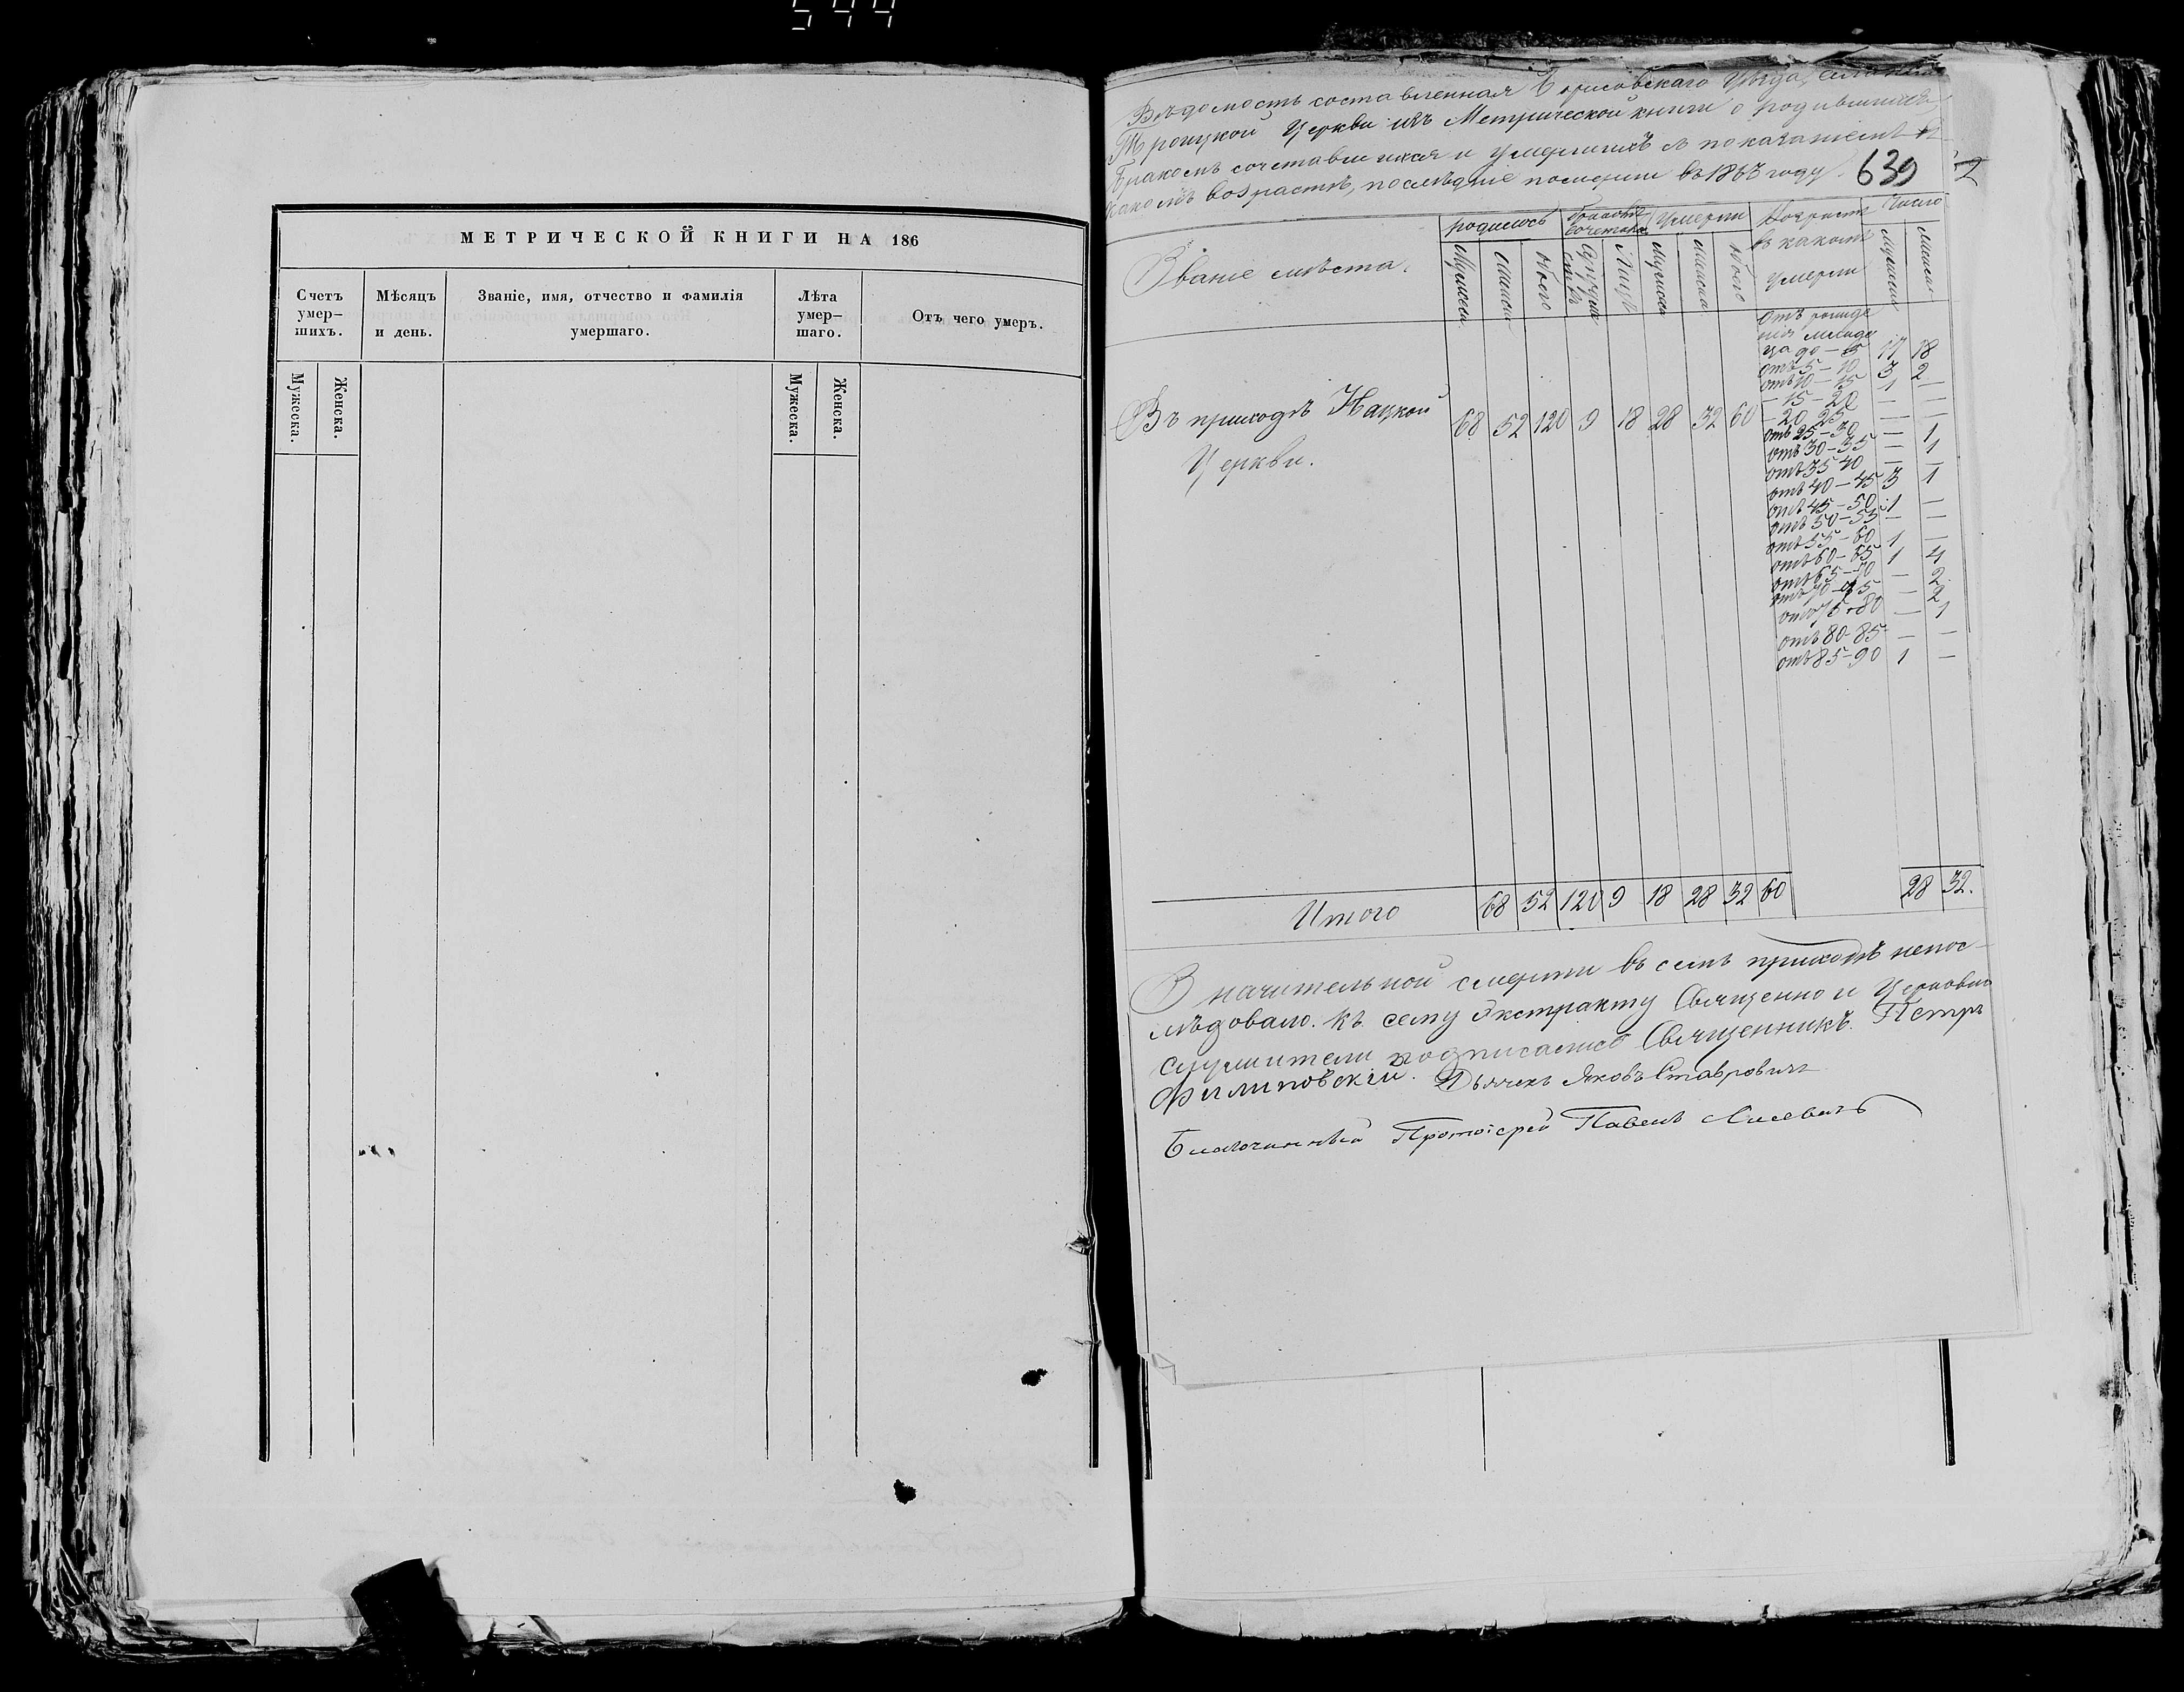 544
МЕТРИЧЕСКОЙ КНИГИ НА 186
Счетъ умер-шихъ.
Мѣсяцъ и день.
Званіе, имя, отчество и фамилія умершаго.
Лѣта умер-шаго.
Отъ чего умеръ.
Мужеска.
Женска.
Мужеска.
Женска.
Вѣдомость составленная Борисовскаго Уѣзда,
Троицкой Церкви изъ Метрической книги о родившихся,
Бракомъ сочетавшихся и умершихъ съ показаніемъ въ
какомъ возрастѣ, послѣдніе померли въ 1863 году.
639
Званіе мѣста.
родилось
Бракомъ сочетало
Умерли
Возрастъ въ какомъ умерли
Число
Мужеска
женска
обоего
Супружествъ
Лицъ
мужеска
женска
обоего
мужеска
женска
Отъ рожде
нія младен
ца до — 5 17 18
отъ 5 — 10 3 2
отъ 10 — 15 1 —
— 15 — 20 — —
— 20 25 — —
отъ 25 — 30 — 1
отъ 30 — 35 — 1
отъ 35 40 — —
отъ 40 — 45 3 1
отъ 45 — 50 1 —
отъ 50 — 55 — —
отъ 55 — 60 1 —
отъ 60 — 65 1 4
отъ 65 — 70 — 2
отъ 70 — 75 — 2
отъ 75 — 80 — 1
отъ 80 — 85 — —
отъ 85 — 90 1 —
Въ приходѣ Нацкой 68 52 120 9 18 28 32 60
Церкви.
Итого 68 52 120 9 18 28 32 60 28 32.
Значительной смерти въ семъ приходѣ непос-
лѣдовало. Къ сему Экстракту Священно и Церковно
служители подписались Священникъ Петръ
Филиповскій. Дьячекъ Яковъ Ставровичъ
Благочинный Протоіерей Павелъ Лисевичъ